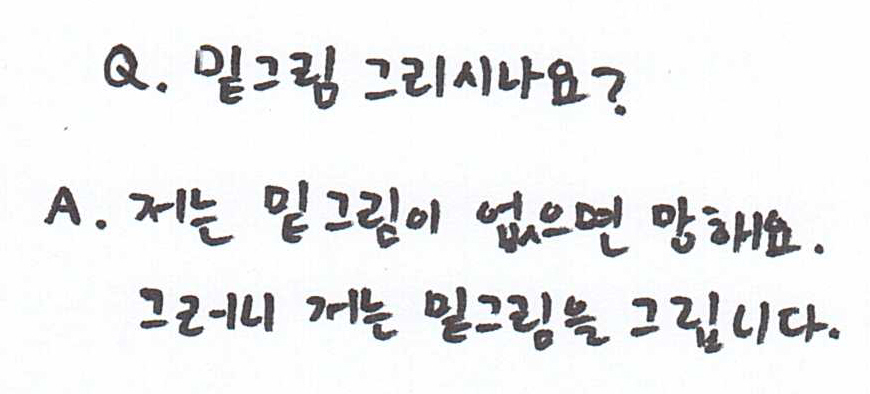 Q. 밑그림 그리시나요?
A. 저는 밑그림이 없으면 망해요.
그러니 저는 밑그림을 그립니다.